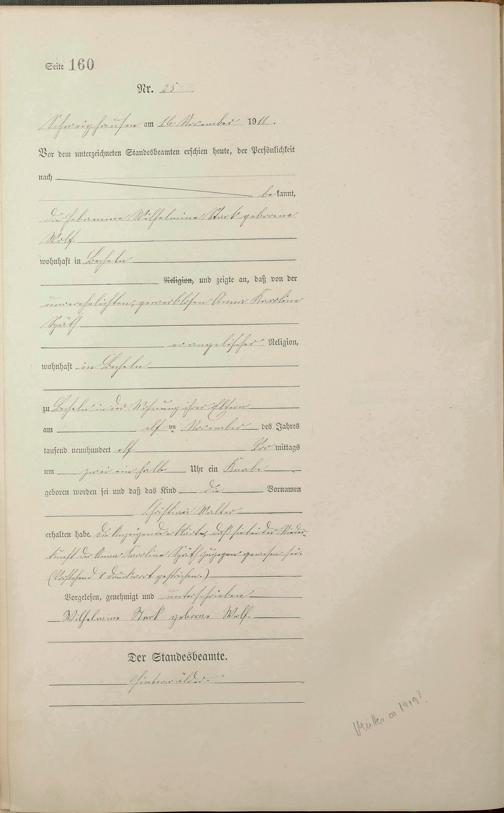 Seite 160
Nr. 25
Schweighausen am 16 November 1911.
Vor dem unterzeichneten Standesbeamten erschien heute, der Persönlichkeit
nach
bekannt,
die Hebamme Wilhelmine Stark geborene
Wolf
wohnhaft in Becheln
Religion, und zeigte an, daß von der
unverehelichten, gewerblosen Anna Karoline
Späth
evangelischer Religion,
wohnhaft in Becheln
zu Becheln in der Wohnung ihrer Eltern
am elf ten November des Jahres
tausend neunhundert elf Vor mittags
um zwei ein halb Uhr ein Knabe
geboren worden sei und daß das Kind die Vornamen
Christian Walter
erhalten habe. Die Anzeigende erklärte, daß sie bei der Nieder-
kunft der Anna Karoline Späth zugegen gewesen sei.
(Vorstehend 1 Druckwort gestrichen.)
Vorgelesen, genehmigt und unterschrieben
Wilhelmine Stark geborene Wolf.
Der Standesbeamte.
1919?